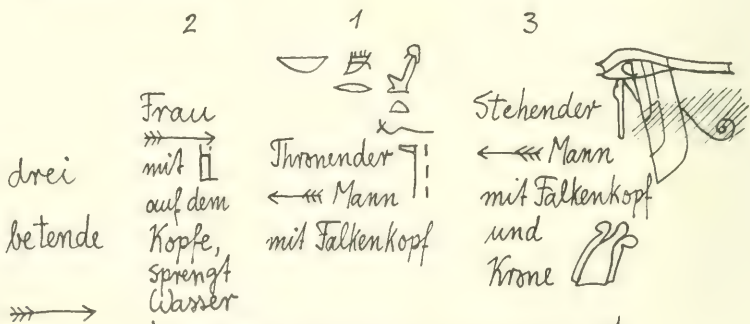 drei
betende
2
Frau
mit
auf dem
Kopfe,
sprengt
Wasser
1
Thronender
Mann
mit Falkenkopf
3
Stehender
Mann
mit Falkenkopf
und
Krone